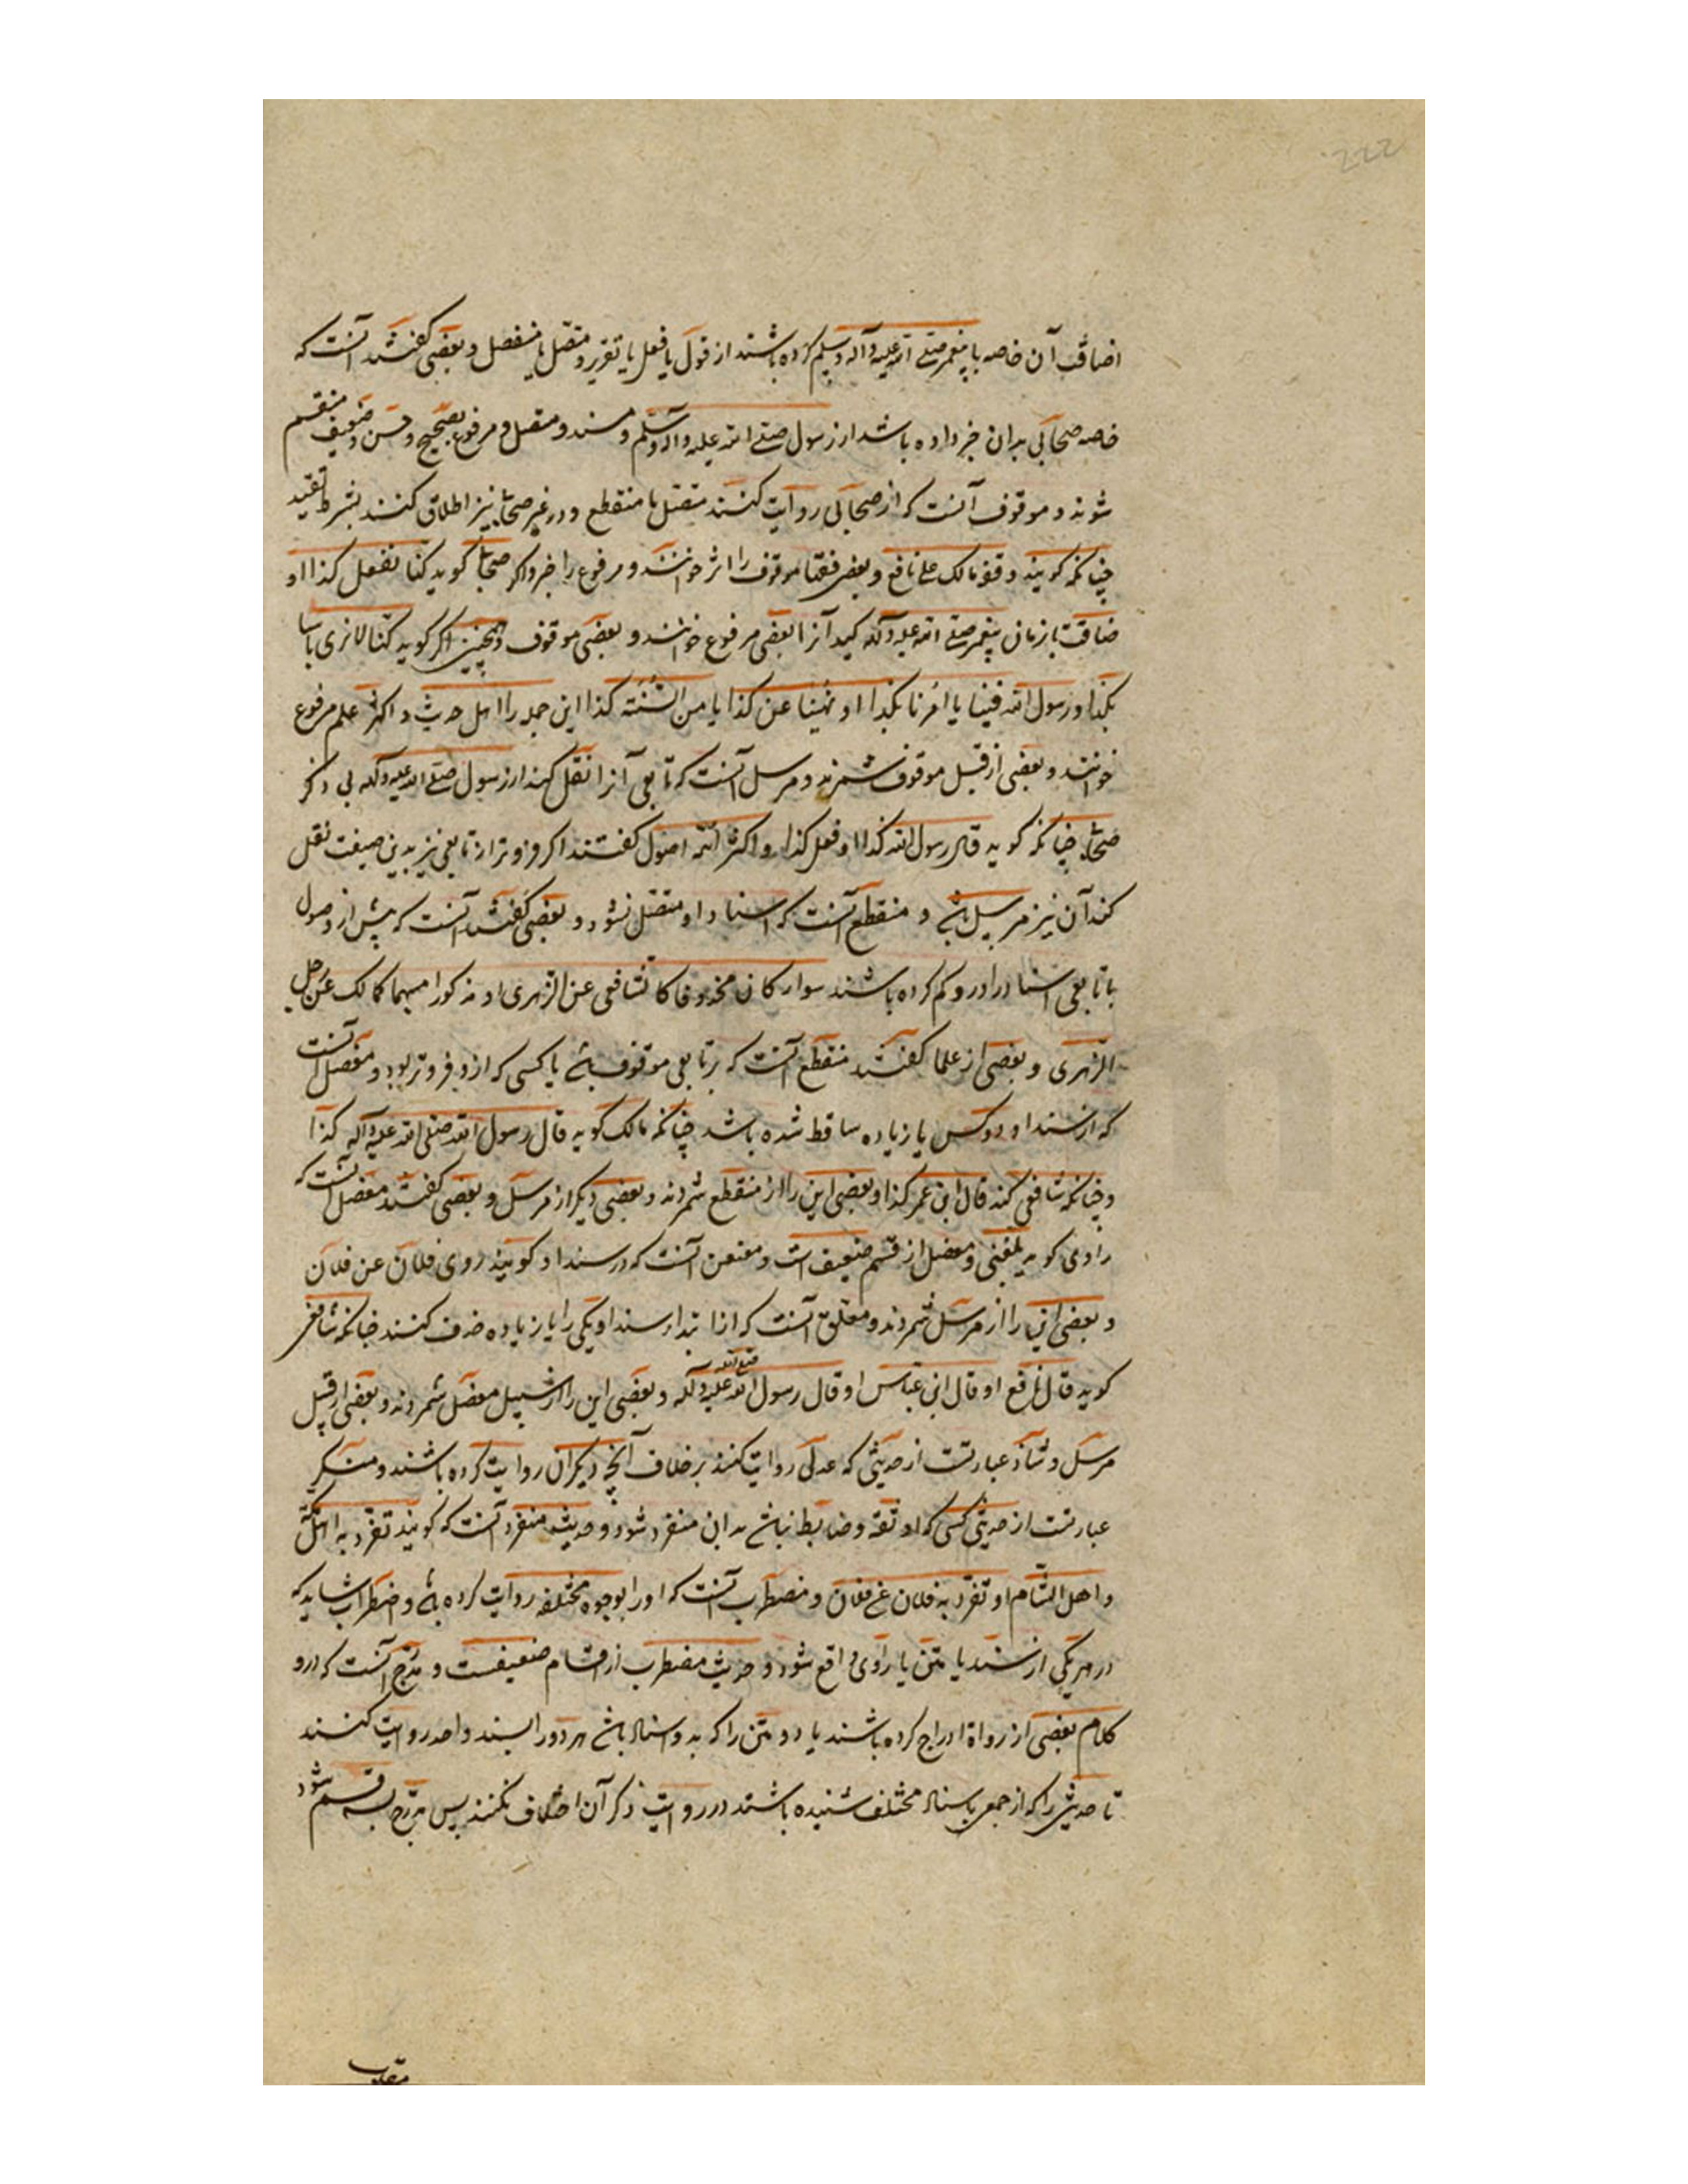 222
اضافت آن خاصه با پیغمبر صلی الله علیه وآله وسلم کرده باشند از قول یا فعل یا تقریر و متصل یا منفصل و بعضی گفتند آنست که
خاصه صحابی بدان خبر داده باشد از رسول صلی الله علیه وآله وسلم و مسند و متصل و مرفوع بصحیح و حسن و ضعیف منقسم
شوند و موقوف آنست که از صحابی روایت کنند متصل یا منقطع و در غیر صحابه نیز اطلاق کنند بشرط تقیید
چنانکه کویند وقفه مالک علی نافع و بعضی فقها موقوف را اثر خوانند و مرفوع را خبر و اکر صحابی کوید کنا نفعل کذا او
ضافت بازمان پیغمبر صلی الله علیه وآله کند آنرا بعضی مرفوع خوانند و بعضی موقوف و همچنین اکر کوید کنا لانری باسا
بکذا و رسول الله فینا یا اُمرنا بکذا او نُهینا عن کذا یا من السُنّته کذا این جمله را اهل حدیث و اکثر علم مرفوع
خوانند و بعضی از قبیل موقوف شمرند و مرسل آنست که تابعی آنرا نقل کند از رسول صلی الله علیه وآله بی ذکر
صحابه چنانکه کوید قال رسول الله کذا او فعل کذا و اکثر ائمه اصول گفتند اکر فروتر از تابعی نیز بدین صیغت نقل
کند آن نیز مرسل باشد و منقطع آنست که اسناد او متصل نشود و بعضی گفتند آنست که پیش از وصول
با تابعی اسناد را درو کم کرده باشند سوا کان محذوفا کالشافعی عن الزهری او مذکورا مبهما کمالک عن رجل
الزهری و بعضی از علما گفتند منقطع آنست که بر تابعی موقوف باشد یا کسی که ازو فروتر بود و معضل آنست
که از سند او دو کس یا زیاده ساقط شده باشد چنانکه مالک کوید قال رسول الله صلی الله علیه وآله کذا
و چنانکه شافعی کند قال ابن عمر کذا و بعضی این را از منقطع شمردند و بعضی دیکر از مرسل و بعضی گفتند معضل آنست که
راوی کوید بلغنی و معضل از قسم ضعیف است و معنعن آنست که در سند او کویند روی فلان عن فلان
و بعضی اینها را از مرسل شمردند و معلق آنست که از ابتداء سند او یکی را یا زیاده حذف کنند چنانکه شافعی
کوید قال نافع او قال ابن عباس او قال رسول الله صلی الله علیه وآله و بعضی این را از سبیل معضل شمردند و بعضی از قبیل
مرسل و شاذ عبارتست از حدیثی که عدلی روایت کنند بر خلاف آنچه دیکران روایت کرده باشند و منکر
عبارتست از حدیثی کسی که او ثقه و ضابط نباشد بدان منفرد شود و حدیث منفرد آنست که کویند تفرد به اهل مکة
و اهل الشام او تفرد به فلان عن فلان و مضطرب آنست که او را بوجوه مختلفه روایت کرده باشد و اضطراب شاید که
در هر یکی از سند یا متن یا راوی واقع شود و حدیث مضطرب از اقسام ضعیفست و مدرج آنست که درو
کلام بعضی از رواة ادراج کرده باشند یا دو متن را که بدو اسناد باشد هر دو را بسند واحد روایت کنند
تا حدیثی را که از جمعی باسناد مختلف شنیده باشند در روایت ذکر آن اختلاف نکنند پس مدرج سه قسم شود
مقلوب